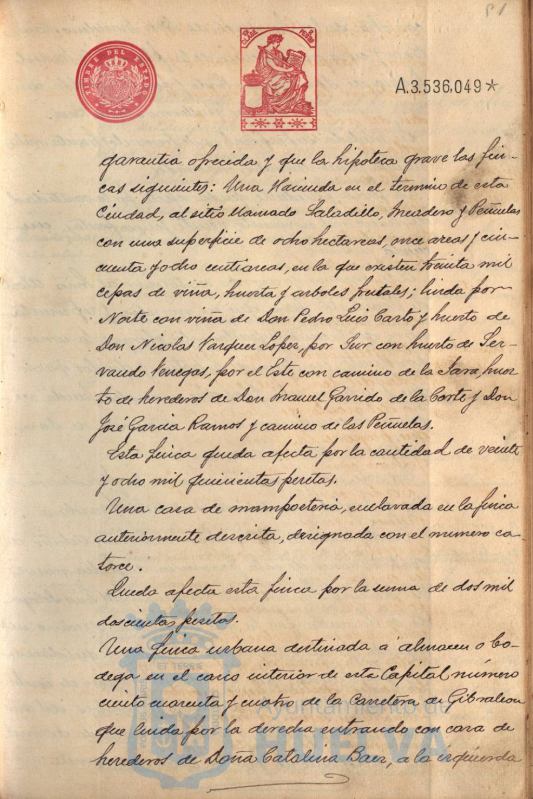 51
TIMBRE DEL ESTADO
A.3.536,049*
garantia ofrecida y que la hipoteca grave las fin-
cas siguientes: Una Hacienda en el término de esta
Ciudad, al sitio llamado Saladillo, Meadero y Peñuelas
con una superficie de ocho hectareas, once areas y cin-
cuenta y ocho centiareas, en la que existen treinta mil
cepas de viña, huerta y arboles frutales; linda por
Norte con viña de Don Pedro Luis Carto y huerto de
Don Nicolas Vazquez Lopez, por Sur con huerto de Ser-
vando Venegas, por el Este con camino de la Jara, huer-
to de herederos de Don Manuel Garrido de la Corte y Don
José Garcia Ramos y camino de las Peñuelas.
Esta finca queda afecta por la cantidad de veinte
y ocho mil quinientas pesetas.
Una casa de mamposteria, enclavada en la finca
anteriormente descrita, designada con el numero ca-
torce.
Queda afecta esta finca por la suma de dos mil
doscientas pesetas.
Una finca urbana destinada á almacen o bo-
dega en el casco interior de esta Capital número
ciento cuarenta y cuatro de la Carretera de Gibraleon
que linda por la derecha entrando con casa de
herederos de Doña Catalina Baez, a la izquierda
Ayuntamiento de
HUELVA